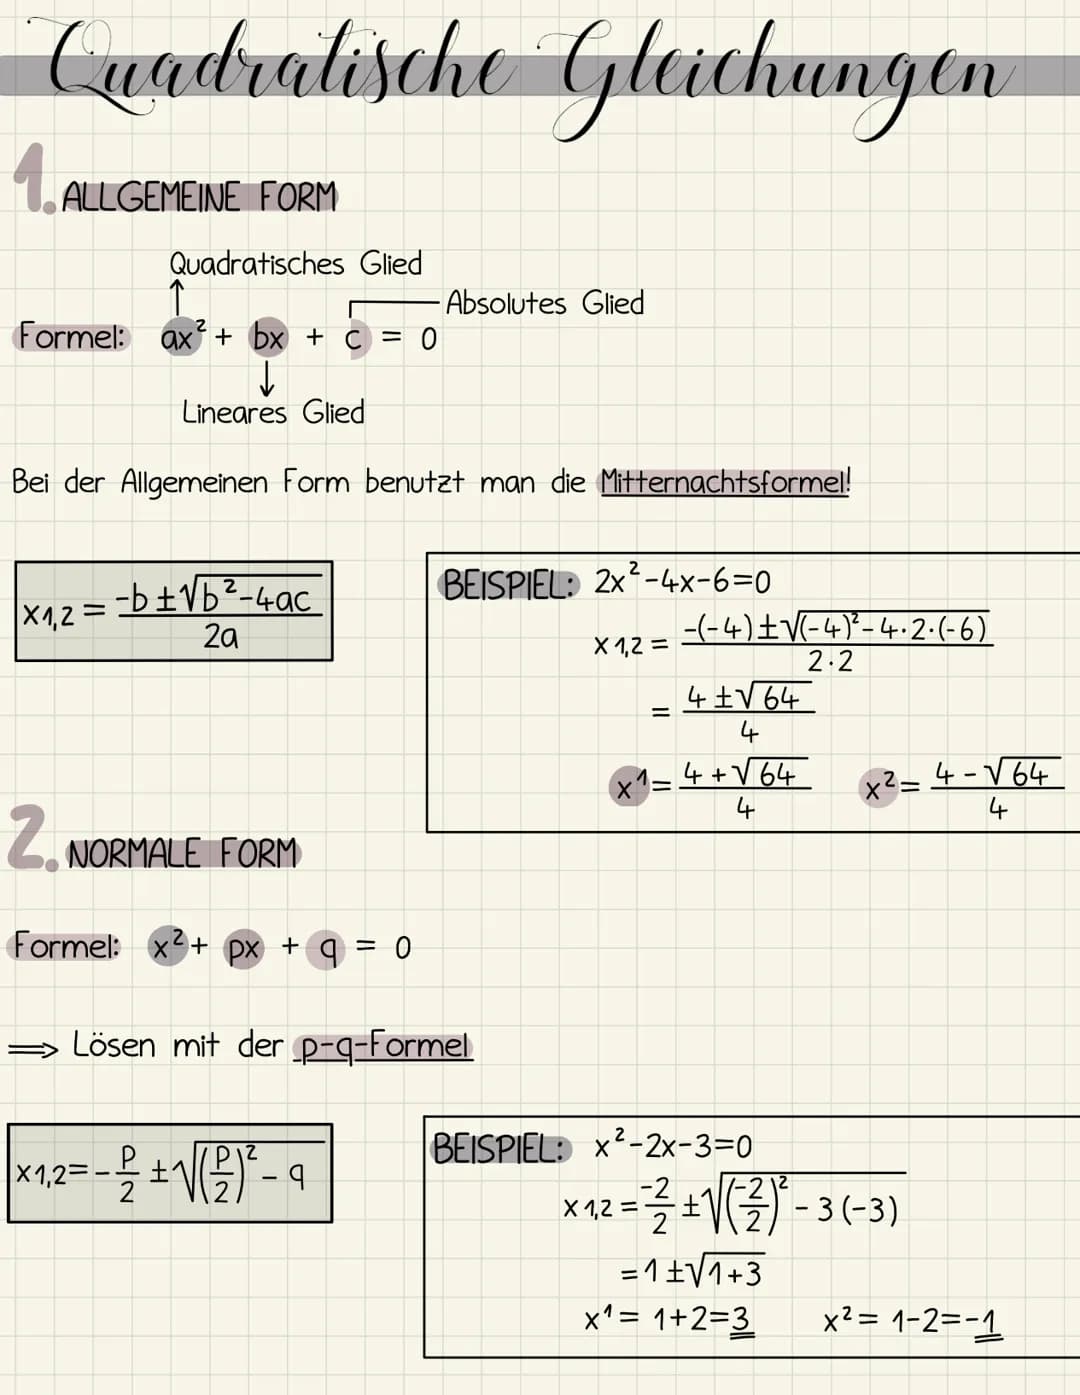 Quadratische Gleichungen
1. ALLGEMEINE FORM
Quadratisches Glied
Absolutes Glied
Formel: ax² + bx + c = 0
Lineares Glied
Bei der Allgemeinen Form benutzt man die Mitternachtsformel!
x1,2 = (-b±√(b²-4ac))/(2a)
BEISPIEL: 2x²-4x-6=0
x1,2 = (-(-4)±√((-4)²-4·2·(-6)))/(2·2)
= (4±√64)/4
x¹= (4+√64)/4 x²= (4-√64)/4
2. NORMALE FORM
Formel: x²+ px + q = 0
⟹ Lösen mit der p-q-Formel
x1,2= -p/2 ±√((p/2)²-q)
BEISPIEL: x²-2x-3=0
x1,2 = -2/2 ±√((-2/2)²-3(-3))
=1±√(1+3)
x¹= 1+2=3 x²= 1-2=-1